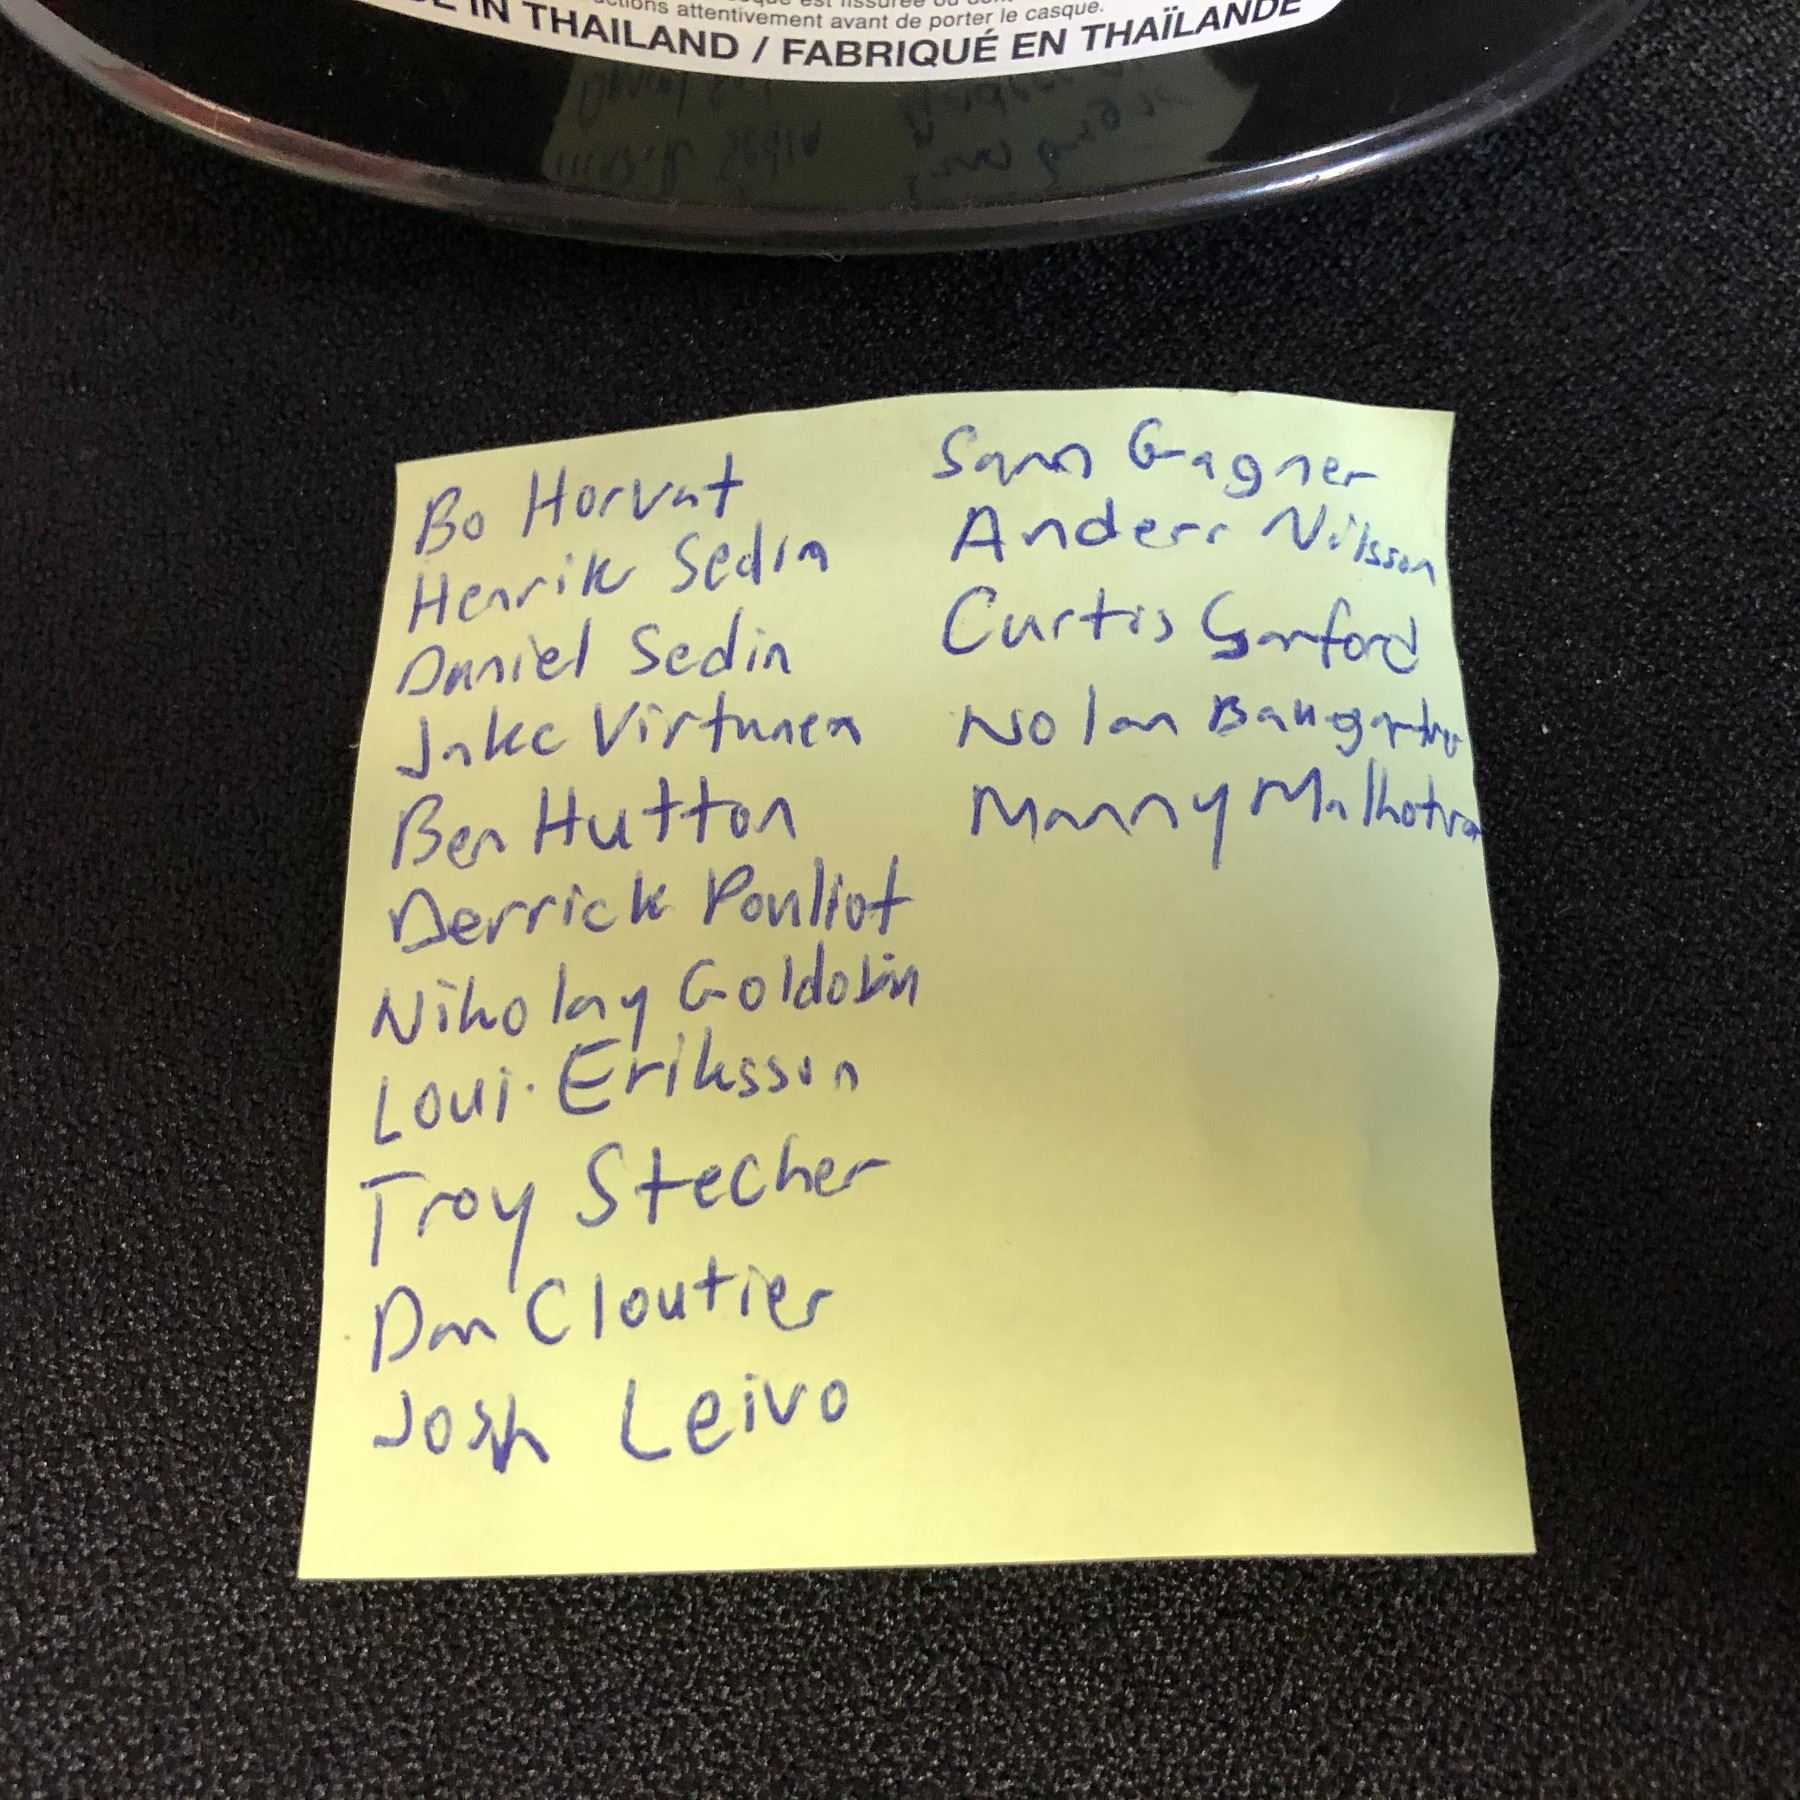 ctions attentivement avant de porter le casque.
IN THAILAND / FABRIQUÉ EN THAÏLANDE
Bo Horvat
Henrik Sedin
Daniel Sedin
Jake Virtanen
Ben Hutton
Derrick Pouliot
Nikolay Goldobin
Loui Eriksson
Troy Stecher
Dan Cloutier
Josh Leivo
Sam Gagner
Anders Nilsson
Curtis Sanford
Nolan Baumgartner
Manny Malhotra